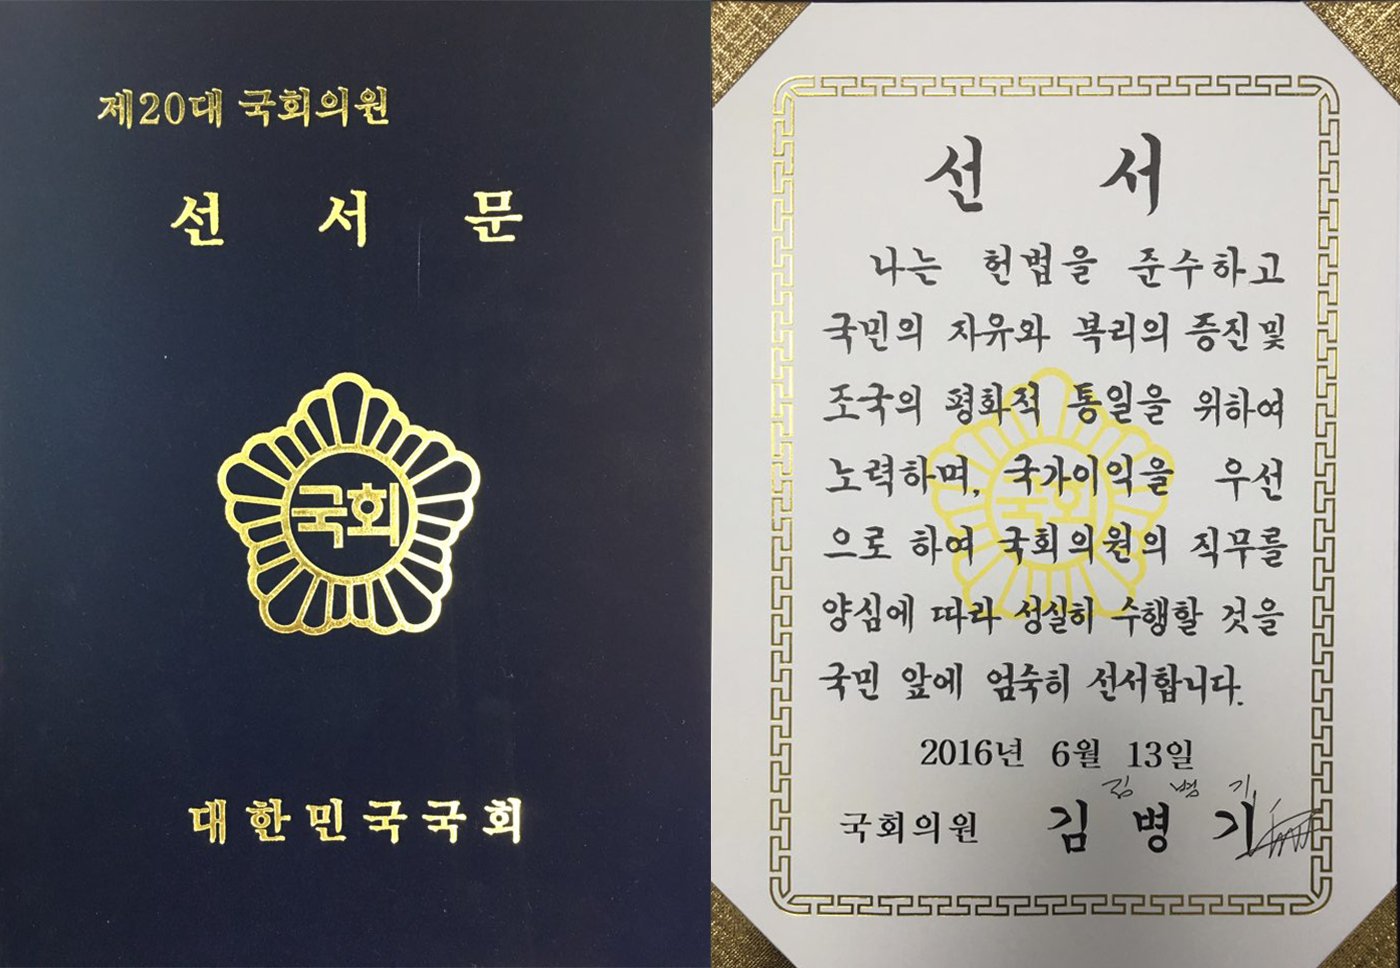 제20대 국회의원
선 서 문
국회
대한민국국회
선 서
나는 헌법을 준수하고
국민의 자유와 복리의 증진 및
조국의 평화적 통일을 위하여
노력하며, 국가이익을 우선
으로 하여 국회의원의 직무를
양심에 따라 성실히 수행할 것을
국민 앞에 엄숙히 선서합니다.
국회
2016년 6월 13일
김 병 기
국회의원 김 병 기